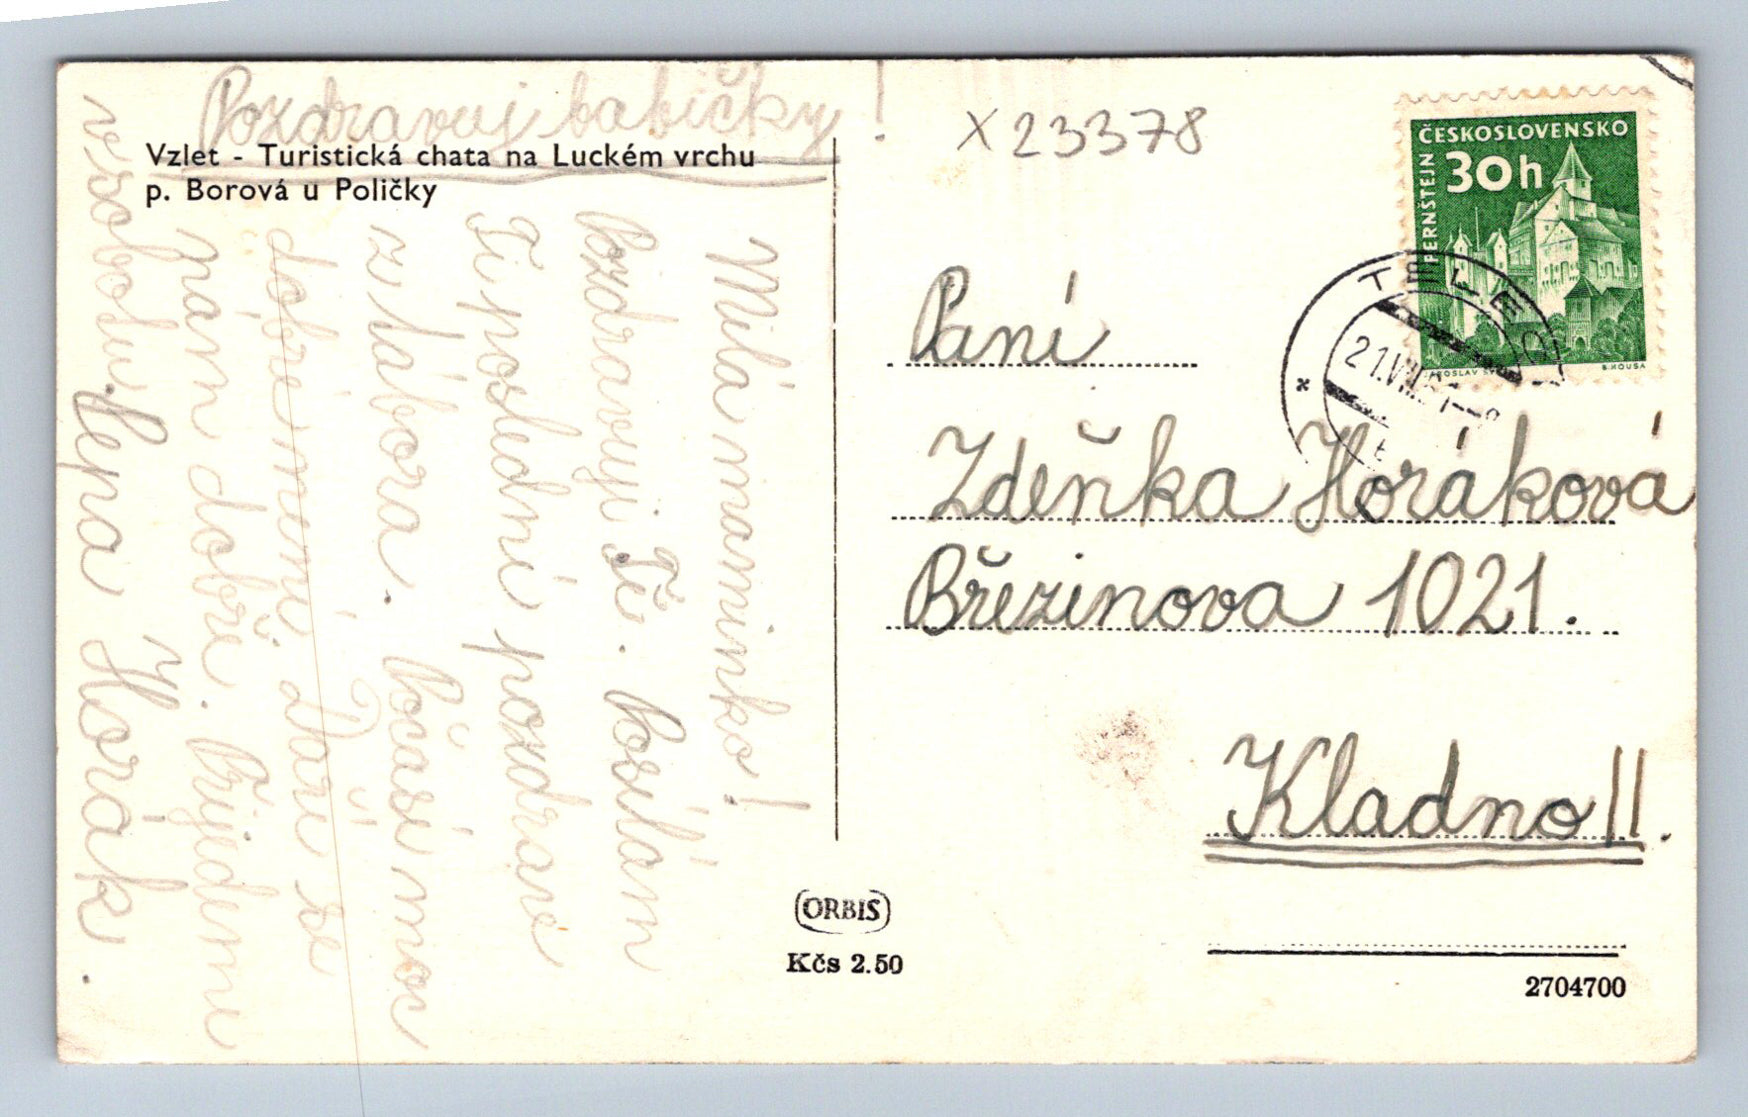 Pozdravuj babičky!
Vzlet - Turistická chata na Luckém vrchu
p. Borová u Poličky
Milá maminko!
Pozdravuji Tě. Posílám
Ti poslední pozdrav
z tábora. Počasí moc
dobré není. Daří se
nám dobře. Přijedem
v sobotu. Pepa Horák.
X23378
ČESKOSLOVENSKO
30h
PERNŠTEJN
JAROSLAV
B.HOUSA
TELEČ
21.VII.
Paní
Zdeňka Horáková
Březinova 1021.
Kladno II.
ORBIS
Kčs 2.50
2704700